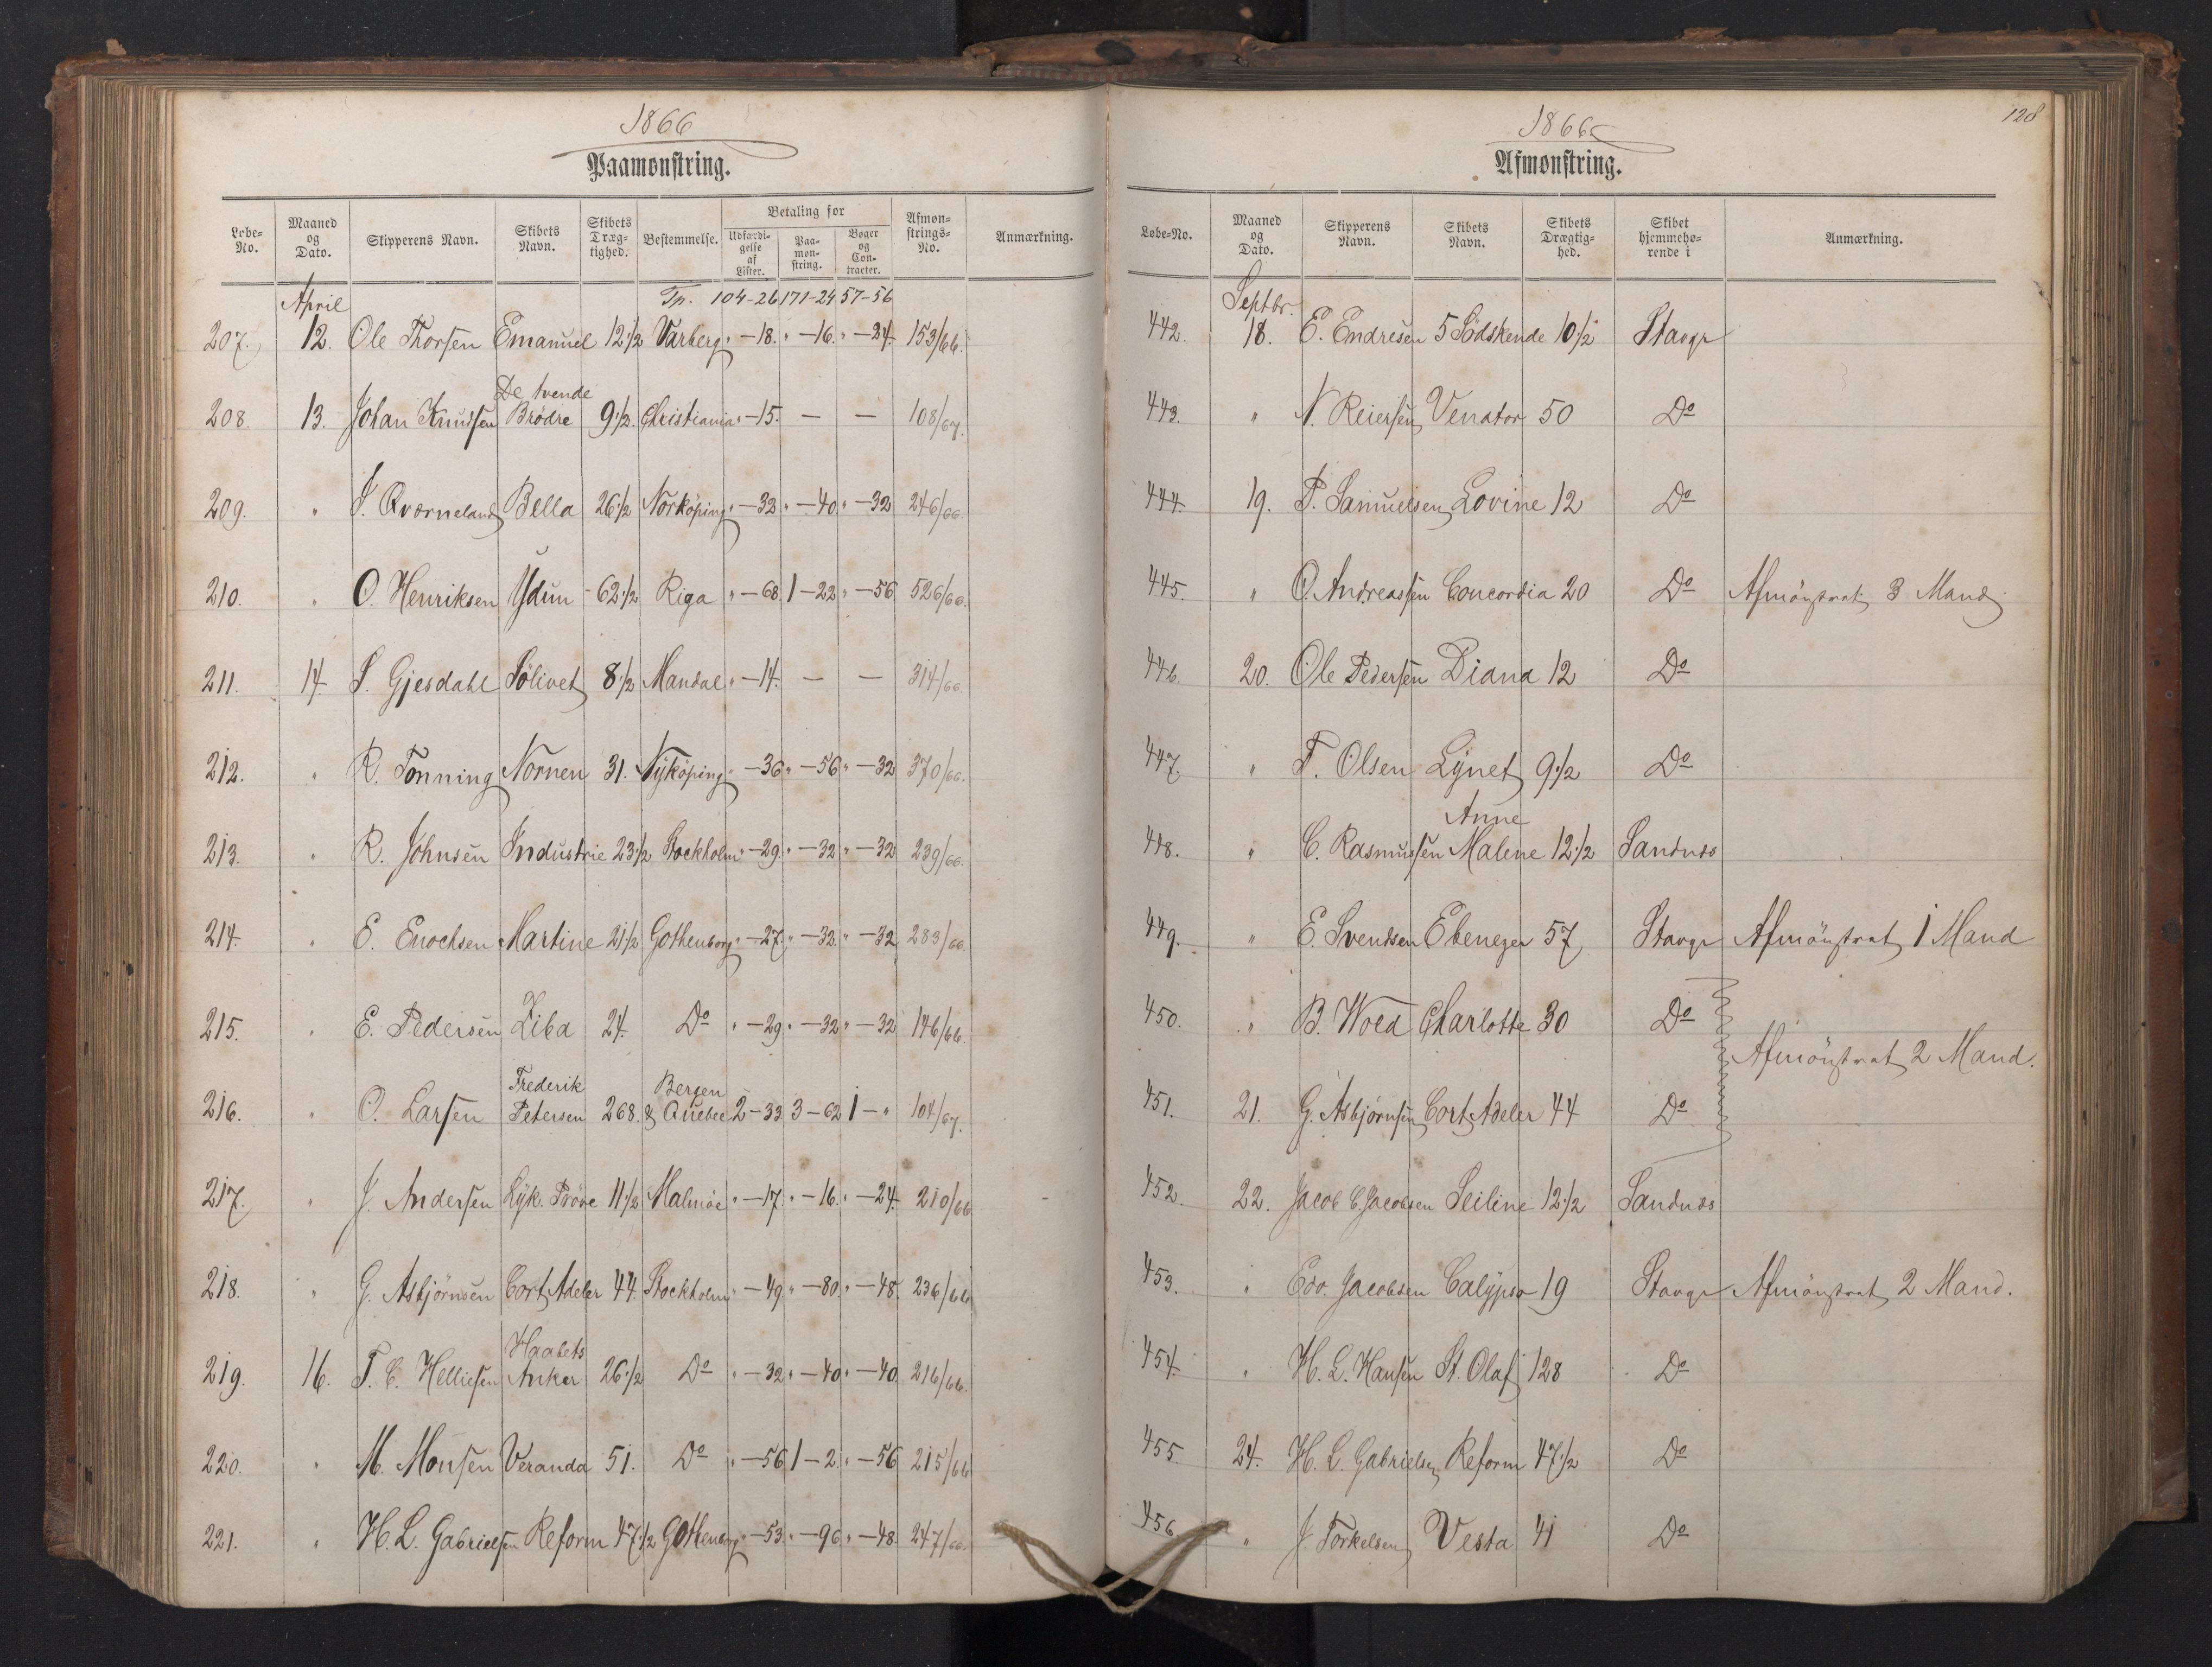 1866
Paamønstring.
Løbe-No. Maaned og Dato. Skipperens Navn. Skibets Navn. Skibets Drægtighed. Bestemmelse. Betaling for Udfærdigelse af Lister. Paamønstring. Bøger og Contracter. Afmønstrings-No. Anmærkning.
April Tp. 104-26 171-24 57-56
207. 12. Ole Thorsen Emanuel 12 1/2 Varberg " -18. " -16. " -24. 153/66.
208. 13. Johan Knudsen De tvende Brödre 9 1/2. Christiania " -15. — — 108/67.
209. " J. Qværneland Bella 26 1/2 Norköping " -32 " -40. " -32 246/66.
210. " O. Henriksen Ydun 62 1/2 Riga " -68. 1-22 " -56 526/66.
211. 14. S. Gjesdahl Sölivet 8 1/2 Mandal " -14. — — 314/66.
212. " R. Tonning Nornen 31. Nyköping " -36 " -56 " -32 370/66.
213. " R. Johnsen Industrie 23 1/2 Stockholm " -29. " -32 " -32 239/66.
214. " E. Enochsen Martine 21 1/2 Gothenborg " -27. " -32. " -32 283/66.
215. " E. Pedersen Ziba 24. Do " -29 " -32 " -32 146/66.
216. " O. Larsen Frederik Petersen 268. Bergen & Quebec 2-33 3-62 1-" 104/67.
217. " J. Andersen Lyk. Pröve 11 1/2 Malmöe " -17. " -16. " -24. 210/66
218. " G. Asbjörnsen Cort Adeler 44. Stockholm " -49 " -80. " -48. 236/66
219. 16. T. C. Helliesen Haabets Anker 26 1/2 Do " -32 " -40. " -40. 216/66.
220. " M. Monsen Veranda 51. Do " -56 1-2. " -56 215/66
221. " H. L. Gabrielsen Reform 47 1/2 Gothenborg " -53. " -96. " -48. 247/66.
128
1866
Afmønstring.
Løbe-No. Maaned og Dato. Skipperens Navn. Skibets Navn. Skibets Drægtighed. Skibet hjemmehørende i Anmærkning.
Septbr.
442. 18. E. Endresen 5 Södskende 10 1/2 Stavgr
443. " N. Reiersen Venator 50 Do
444. 19. P. Samuelsen Lovine 12 Do
445. " O. Andreassen Concordia 20 Do Afmönstret 3 Mand
446. 20. Ole Pedersen Diana 12 Do
447. " T. Olsen Lynet 9 1/2 Do
448. " C. Rasmussen Anne Malene 12 1/2 Sandnæs
449. " E. Svendsen Ebenezer 57 Stavgr Afmönstret 1 Mand
450. " B. Woed Charlotte 30 Do
Afmönstret 2 Mand.
451. 21. G. Asbjörnsen Cort Adeler 44 Do
452. 22. Jacob C. Jacobsen Seiline 12 1/2 Sandnæs
453. " Edv. Jacobsen Calypso 19 Stavgr Afmönstret 2 Mand.
454. " H. L. Hansen St. Olaf 128 Do
455. 24. H. L. Gabrielsen Reform 47 1/2 Do
456. " J. Torkelsen Vesta 41 Do